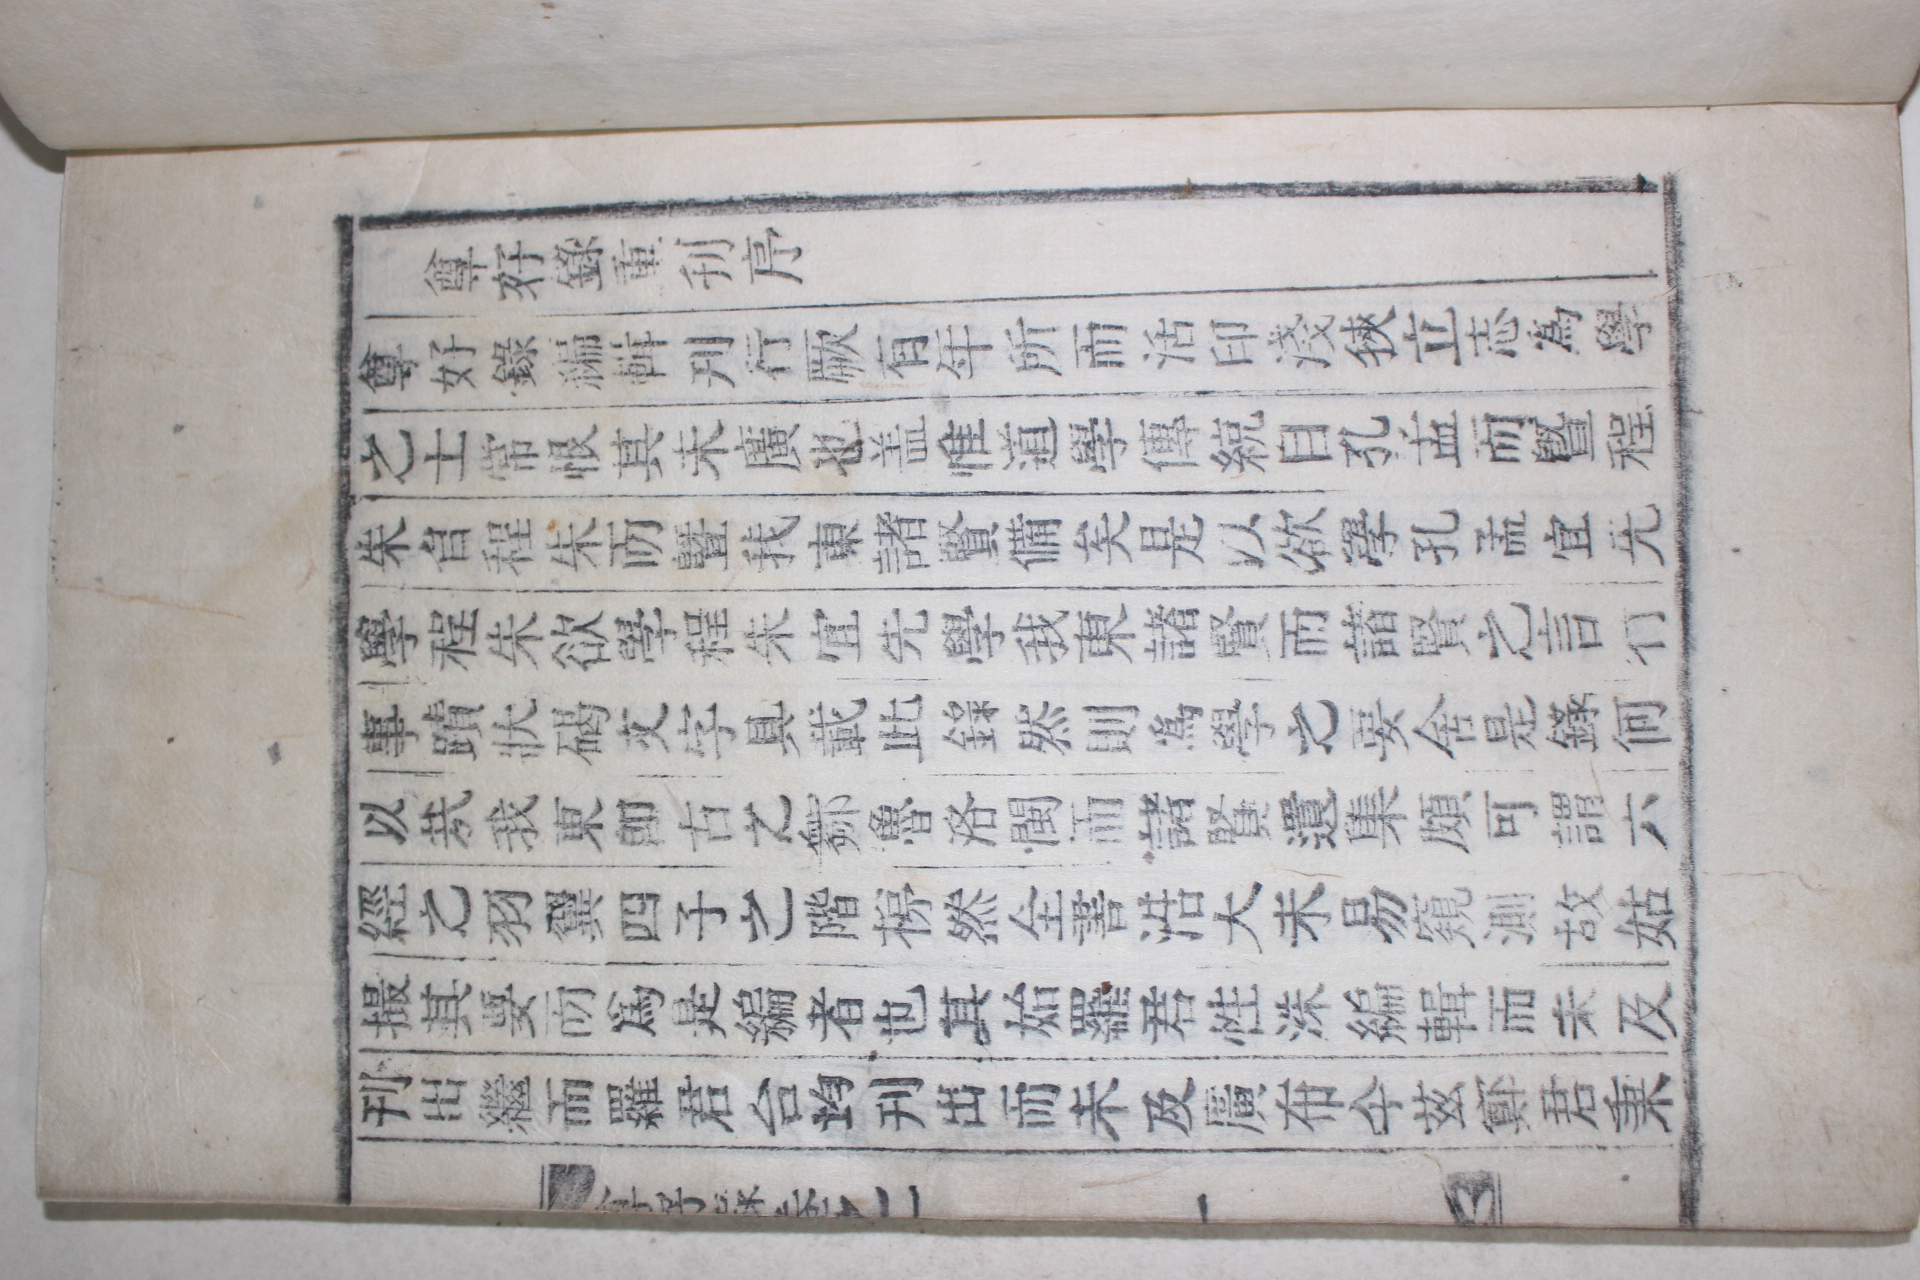 尊好錄重刋序
尊好錄編輯刋行厥有年所而活印淺狹立志爲學
之士常恨其未廣也盖惟道學傳統自孔孟而曁程
朱自程朱而曁我東諸賢備矣是以欲學孔孟宜先
學程朱欲學程朱宜先學我東諸賢而諸賢之言行
事蹟狀碣文字具載此錄然則爲學之要舍是錄何
以㢤我東卽古之鄒魯洛閩而諸賢遺集頗可謂六
經之羽翼四子之階梯然全書浩大未易窺測故姑
撮其要而爲是編者也其始羅君性洙編輯而未及
刋出繼而羅君台均刋出而未及廣布今茲鄭君秉
尊好錄卷之一
一